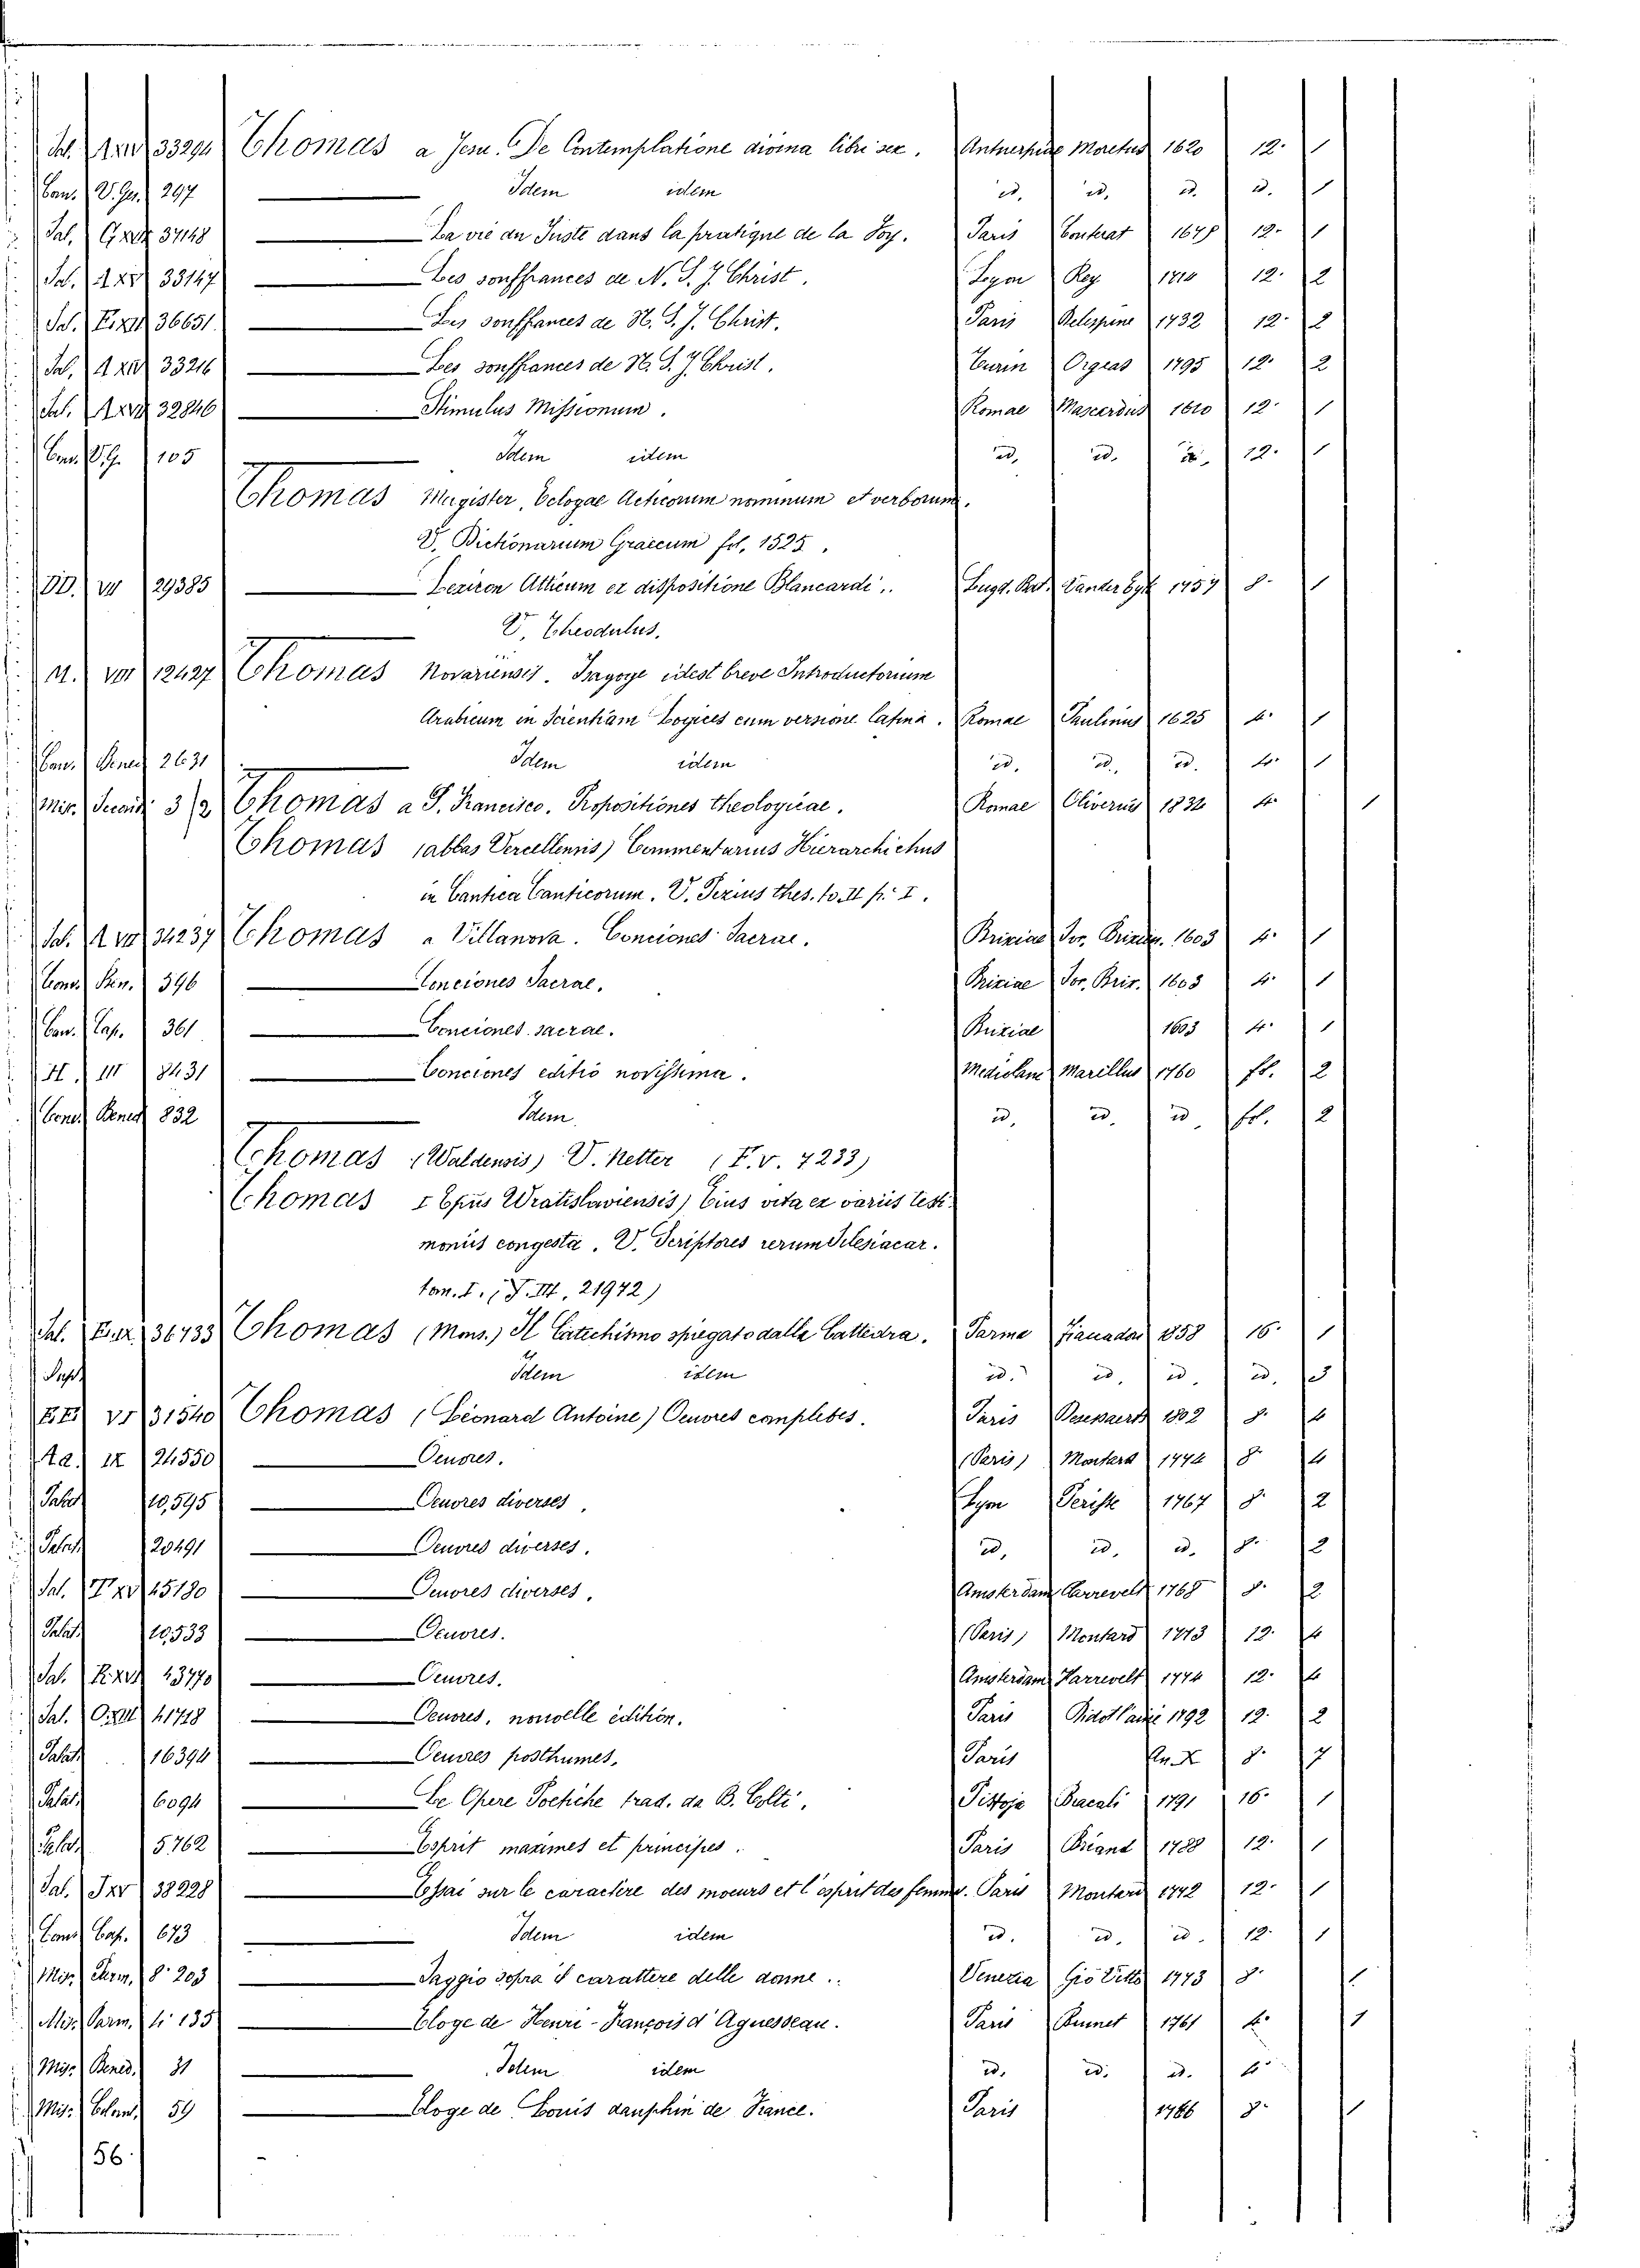 Sal. A XVI 33294 Thomas a Jesu. De Contemplatione divina libri sex. Antuerpiae Moretus 1620 12. 1
Con. V. Ges. 297 Idem idem id. id. id. id. 1
Sal. G XIX 37148 La vie du Juste dans la pratique de la Foy. Paris Conterat 1678 12. 1
Sal. A XV 33147 Les souffrances de N. S. J. Christ. Lyon Rey 12. 2
Sal. 36651. Les souffrances de N. S. J. Christ. Paris Delespine 1732 12. 2
Sal. A XVI 33216 Les souffrances de N. S. J. Christ. Turin Orgeas 1795 12. 2
Sal. 32846 Stimulus Missionum. Romae Mascardus 1610 12. 1
Con. V. G. 105 Idem idem id. id. id. 12. 1
Thomas Magister, Eclogae Acticorum nominum et verborum.
V. Dictionarium Graecum fol. 1525.
DD. VII 29385 Lexicon Atticum ex dispositione Blancardi. Lugd. Bat. Vander Eyk 1757 8. 1
V. Theodulus.
M. VIII 12427 Thomas Novariensis. Isagoge idest breve Introductorium
Arabicum in Scientiam Logices cum versione latina. Romae Paulinus 1625 4. 1
Con. Bened. 2631 Idem idem id. id. id. 4. 1
Mis. 3/2 Thomas a S. Francisco. Propositiones theologicae. Romae Oliverius 1832 4. 1
Thomas (abbas Vercellensis) Commentarius Hierarchichus
in Cantica Canticorum. V. Pezius thes. to. II p. I.
Sal. 34237 Thomas a Villanova. Conciones Sacrae. Brixiae Soc. Brixien. 1603 4. 1
Conv. 396 Conciones Sacrae. Brixiae Soc. Brix. 1603 4. 1
Con. Cap. 361 Conciones sacrae. Brixiae 1603 4. 1
H. III 8431 Conciones editio novissima. Mediolani Marellus 1760 fl. 2
Conv. Bened. 832 Idem id. id. id. fol. 2
Thomas (Waldensis) V. Netter (F. V. 7233)
Thomas (Epus Wratislaviensis) Eius vita ex variis testi-
moniis congesta. V. Scriptores rerum Silesiacar.
tom. I. (J. III, 21972)
Sal. 36733 Thomas (Mons.) Il Catechismo spiegato dalla Cattedra. Parma Fiaccadori 1858 16. 1
Idem idem id. id. id. id. 3
EE VI 31540 Thomas (Léonard Antoine) Oeuvres complètes. Paris Desessarts 1802 8. 4
Aa. IX 24550 Oeuvres. (Paris) Moutard 1774 8. 4
Palat. 10,595 Oeuvres diverses. Lyon Periste 1767 8. 2
Palat. 20491 Oeuvres diverses. id. id. id. 8. 2
Sal. T XV 45180 Oeuvres diverses. Amsterdam Harrevelt 1768 8. 2
Palat. 10,533 Oeuvres. (Paris) Moutard 1773 12. 4
Sal. R XVI 43770 Oeuvres. Amsterdam Harrevelt 1774 12. 4
Sal. O XVII 41728 Oeuvres, nouvelle édition. Paris Didot l'ainé 1792 12. 2
Palat. 16394 Oeuvres posthumes. Paris An. X 8. 7
Palat. 6094 Le Opere Poetiche trad. da B. Colti. Pistoja Bracali 1791 16. 1
Palat. 5762 Esprit maximes et principes. Paris Briand 1788 12. 1
Sal. I XV 38228 Essai sur le caractère des moeurs et l'esprit des femmes. Paris Moutard 1772 12. 1
Conv. Cap. 673 Idem idem id. id. id. 12. 1
Mis. Carm. 8. 203 Saggio sopra il carattere delle donne. Venezia Gio Vitto 1773 8. 1
Mis. Carm. 4. 135 Eloge de Henri-François d'Aguesseau. Paris Brunet 1761 4. 1
Mis. Bened. 31 Idem idem id. id. id. 4.
Mis. 59 Eloge de Louis dauphin de France. Paris 1766 8. 1
56.